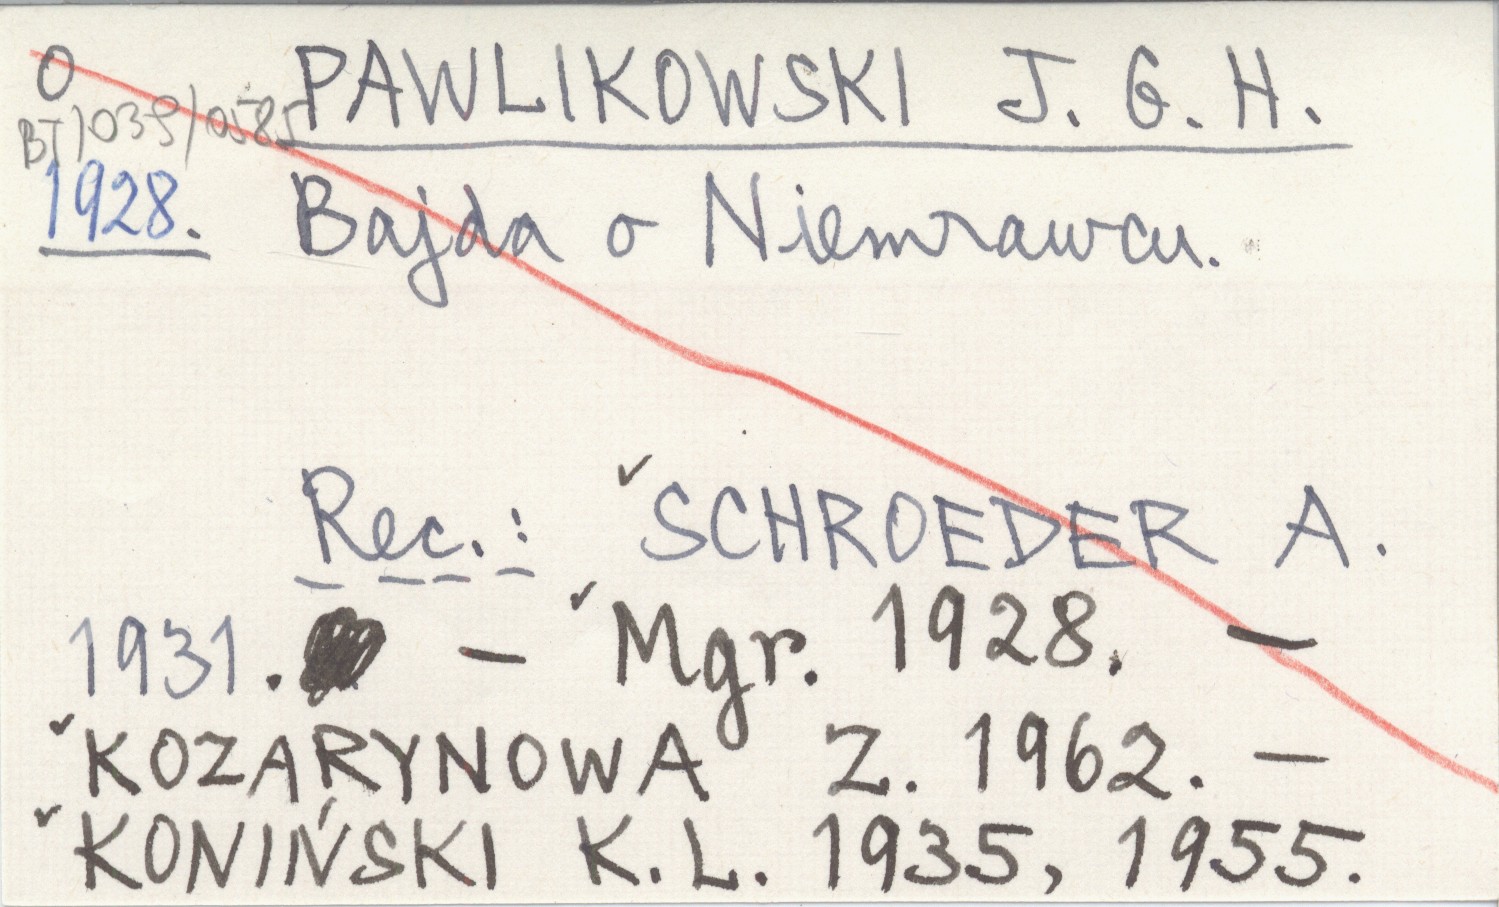 O PAWLIKOWSKI J. G. H.
BT/1039/0585
1928. Bajda o Niemrawcu.
Rec.: ✓SCHROEDER A.
1931. – ✓Mgr. 1928. –
✓KOZARYNOWA Z. 1962. –
✓KONIŃSKI K. L. 1935, 1955.